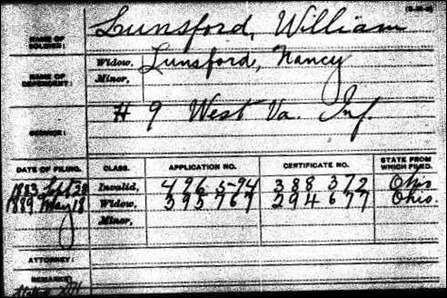 NAME OF SOLDIER: Lunsford, William
NAME OF DEPENDENT: Widow, Lunsford, Nancy
Minor,
SERVICE: H 9 West Va. Inf.
DATE OF FILING. CLASS. APPLICATION NO. CERTIFICATE NO. STATE FROM WHICH FILED.
1883 Sept 28 Invalid, 496594 388372 Ohio
1889 May 18 Widow, 395767 294677 Ohio.
Minor,
ATTORNEY:
REMARKS: